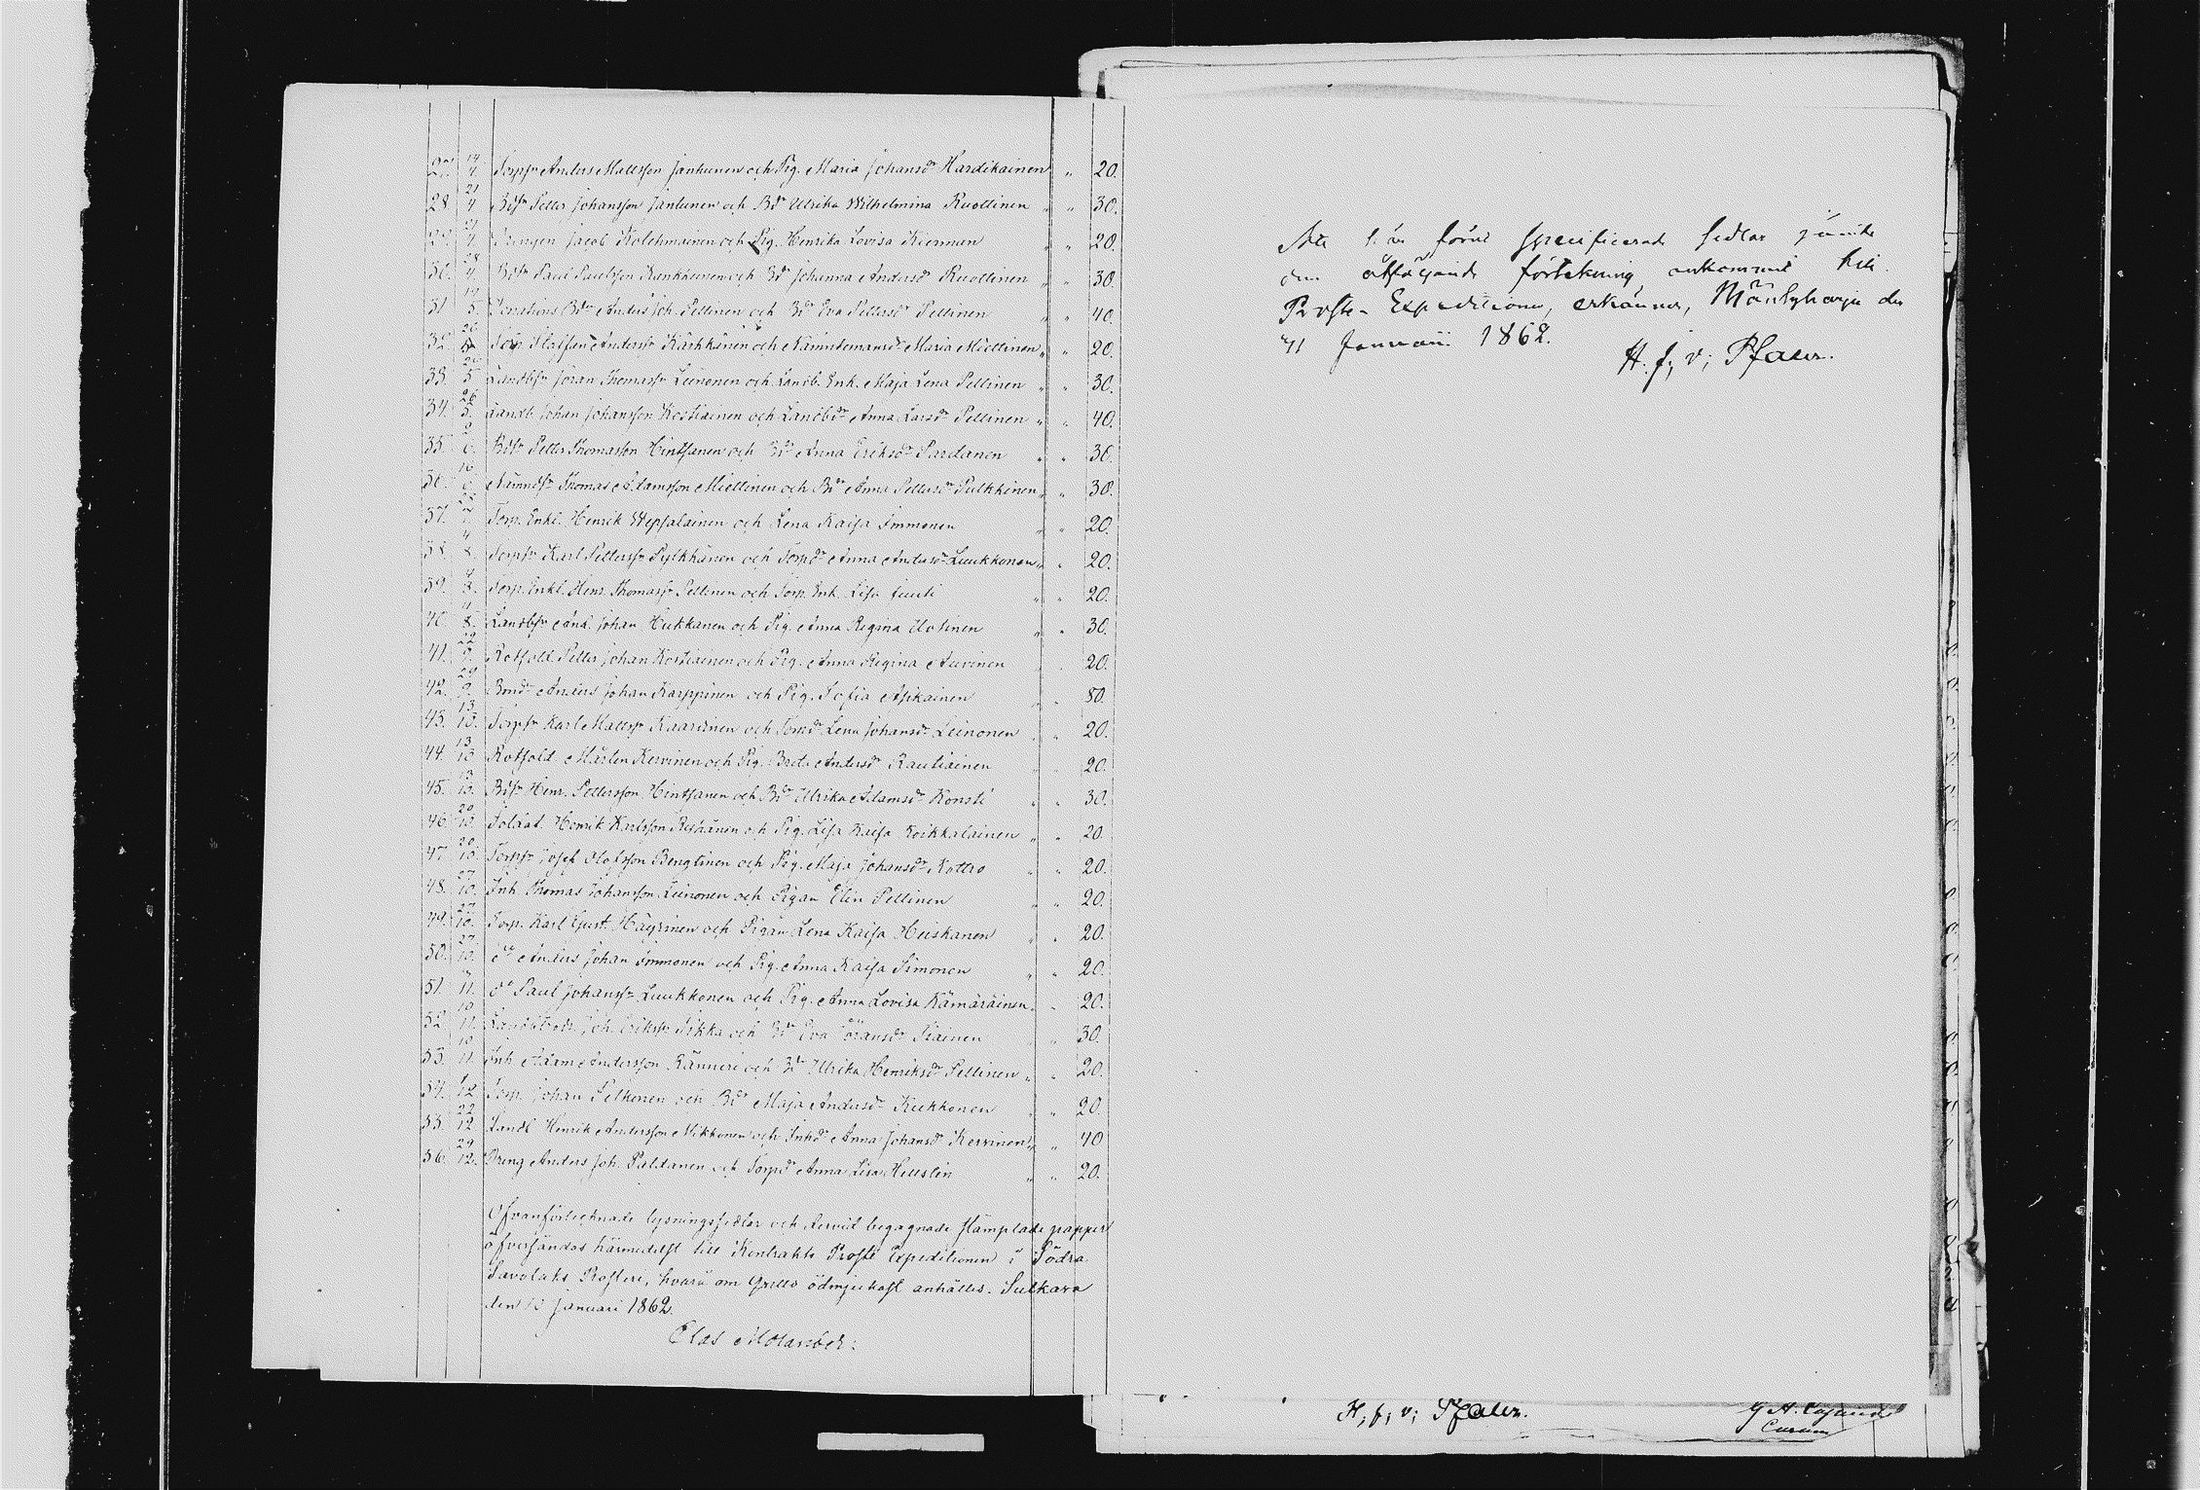 27. 14/4. Torpsn Anders Mattsson Janhunen och Pig. Maria Johansdr Hardikainen " 20.
28 21/4. Bdsn Petter Johansson Jantunen och Bdr Ulrika Wilhelmina Ruottinen " " 30.
29. 21/4. Drengen Jacob Kolehmainen och Pig. Henrika Lovisa Kiermen " " 20.
30. 28/4. Bdsn Paul Paulsson Kankkunen och Bdr Johanna Andersdr Ruottinen " " 30.
31 19/5. Bdn Anders Joh. Pellinen och Bdr Eva Pettersdr Pellinen " " 40.
32 26/5 Torp. Staffan Anderssn Karhkinen och Nämndemansdr Maria Miettinen " " 20.
33. 26/5 Landbsn Jöran Thomassn Leinonen och Landb. Enk. Maja Lena Pellinen " " 30.
34. 26/5. Landb. Johan Johansson Kostiainen och Landbdr Anna Larsdr Pellinen " " 40.
35 9/6. Bdsn Petter Thomasson Hintsanen och Bdr Anna Eriksdr Pardanen " " 30.
36. 16/6. Nämndsn Thomas Adamsson Miettinen och Bdr Anna Pettersdr Pulkkinen " " 30.
37. 7. Torp. Enkl. Henrik Wepsalainen och Lena Kaisa Immonen " " 20.
38. 4/8. Torpsn Karl Petterssn Pylkkänen och Torpdr Anna Andersdr Luukkonen " " 20.
39. 4/8. Torp. Enkl. Henr. Thomassn Pellinen och Torp. Enk. Lisa Juuti " " 20.
40. 4/8. Landbsn And. Johan Hukkanen och Pig. Anna Regina Uotinen " " 30.
41. 22/9. Rotsold. Petter Johan Kostiainen och Pig. Anna Regina Auvinen " 20.
42. 29/9. Bond. Anders Johan Karppinen och Pig. Sofia Asikainen " " 80.
43. 13/10. Torpsn Karl Mattssn Kaartinen och Torpdr Lena Johansdr Leinonen " " 20.
44. 13/10 Rotsold. Mårten Kervinen och Pig. Brita Andersdr Rautiainen " 20.
45. 13/10. Bdsn Henr. Pettersson Hintsanen och Bdr Ulrika Adamsdr Konsti " " 30.
46. 20/10. Soldat. Henrik Karlsson Reihänen och Pig. Lisa Kaisa Koikkalainen " " 20.
47. 20/10. Torpsn Josef Olofsson Bengtinen och Pig. Maja Johansdr Kottro " " 20.
48. 27/10. Inh. Thomas Johansson Leinonen och Pigan Elin Pellinen " " 20.
49. 27/10. Torp. Karl Gust. Häyrinen och Pigan Lena Kaisa Heiskanen " " 20.
50. 27/10. do Anders Johan Immonen och Pig. Anna Kaisa Simonen " " 20.
51. 11. do Paul Johanssn Luukkonen och Pig. Anna Lovisa Kämäräinen " " 20.
52. 10/11. Joh. Erikssn Sikka och Bdr Eva Göransdr Siainen " 30.
53. 10/11. Inh. Adam Andersson Ränneri och Bdr Ulrika Henriksdr Pellinen " " 20.
54. 12 Torp. Johan Pelkonen och Bdr Maja Andersdr Kukkonen " " 20.
55. 22/12 Landb. Henrik Andersson Mikkonen och Inhdr Anna Johansdr Kervinen " " 40
56. 29/12. Dreng Anders Joh. Paldanen och Torpdr Anna Lisa Hillstin " " 20.
Ofvanförtecknade lysningssedlar och dervid begagnade stämplade papper
öfversändas härmedelst till Kontrakts Prosts Expeditionen i Södra
Savolaks Prosteri, hvarå om Qvitto ödmjukast anhålles. Sulkava
den 10 Januari 1862.
Clas Molander.
Att här förut specificerade sedlar jämte
den åtföljande förtekning ankommit till
Prosts-Expeditionen, erkännes, Mäntyharju den
31 Januari 1862.
H. f; v; Pfaler.
H; f; v; Pfaler.